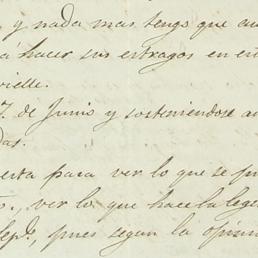 y nada mas tengo que au
á hacer sus estragos en en
rielle.
7. de Junio y sosteniendose a
das.
esta para ver lo que se pu
ver lo que hace la leg
Sepe., pues segun la opini